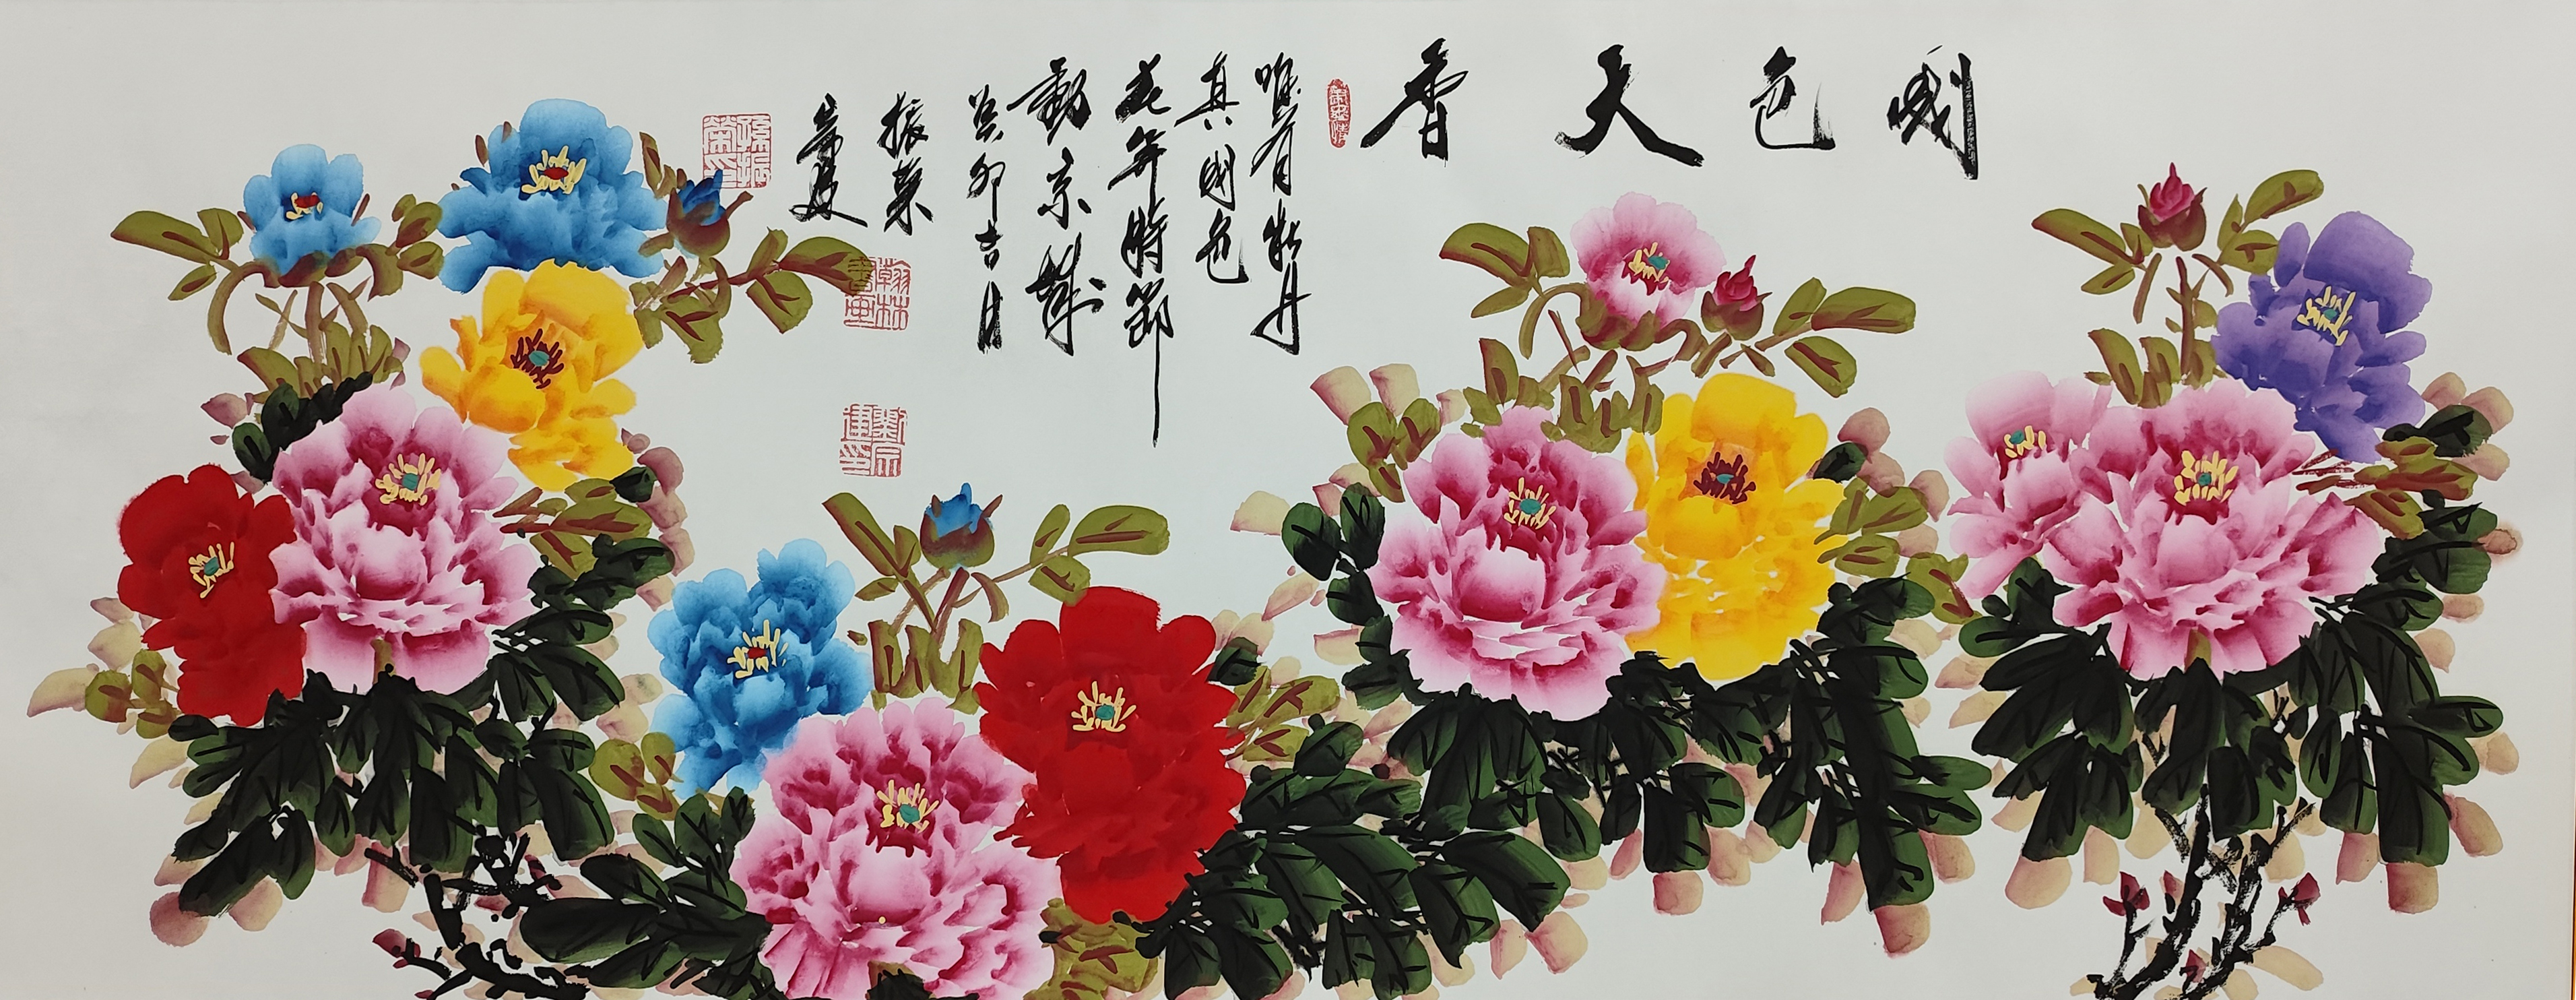 國色天香
唯有牡丹
真國色
花開時節
動京城
癸卯吉日
振榮
孫振榮印
翰林書畫